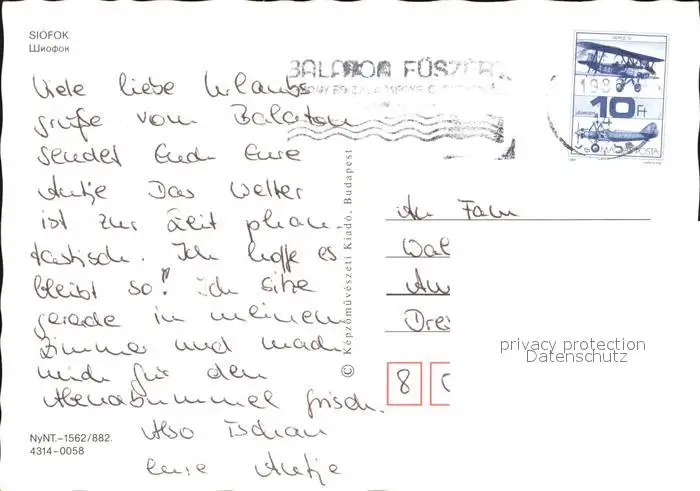 SIÓFOK
Шиофок
Viele liebe Urlaubs
grüße vom Balaton
sendet Euch Eure
Antje Das Wetter
ist zur Zeit phan-
tastisch. Ich hoffe es
bleibt so! ich sitze
gerade in meinem
Zimmer und mach
mich für den
Abendbummel frisch.
Also Tschau
eure Antje
NyNT.–1562/882.
4314–0058
© Képzőművészeti Kiadó, Budapest
BALATON FŰSZÉRT
198
10 Ft
MAGYAR POSTA
An Fam
Wal
An
Dre
8
privacy protection
Datenschutz